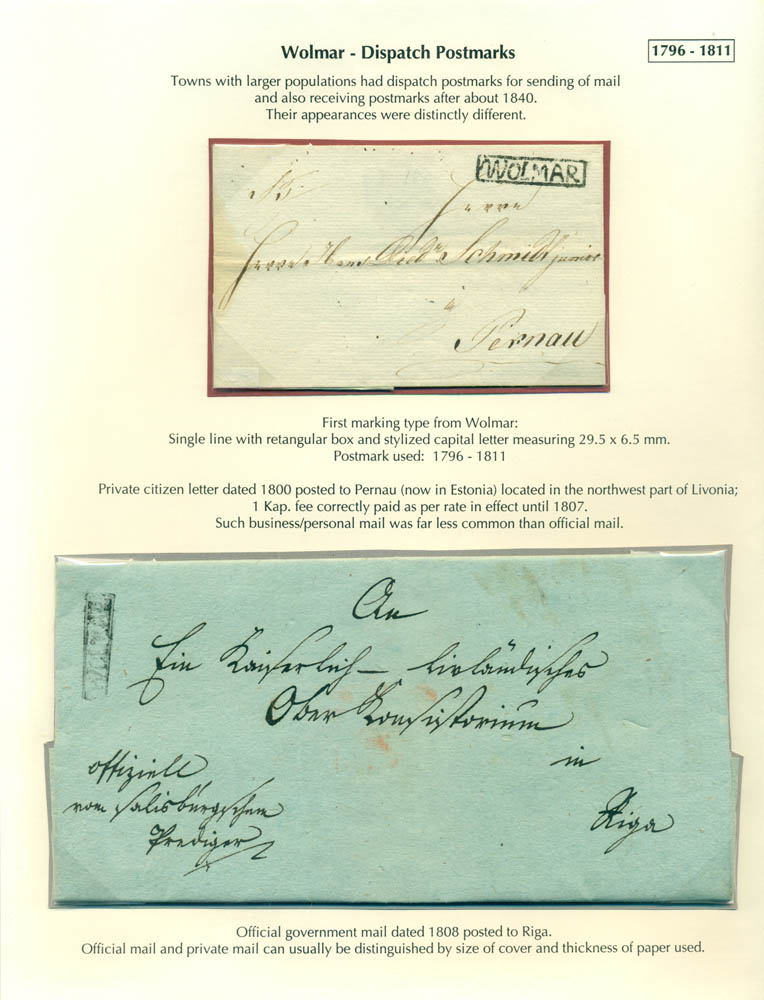 Wolmar - Dispatch Postmarks
1796 - 1811
Towns with larger populations had dispatch postmarks for sending of mail
and also receiving postmarks after about 1840.
Their appearances were distinctly different.
WOLMAR
Herrn
Herrn Schmidt junior
à
Pernau
First marking type from Wolmar:
Single line with retangular box and stylized capital letter measuring 29.5 x 6.5 mm.
Postmark used: 1796 - 1811
Private citizen letter dated 1800 posted to Pernau (now in Estonia) located in the northwest part of Livonia;
1 Kap. fee correctly paid as per rate in effect until 1807.
Such business/personal mail was far less common than official mail.
WOLMAR
An
Ein Kaiserlich - livländisches
Ober Konsistorium
in
Riga
offiziell
vom Salisburgschen
Prediger
Official government mail dated 1808 posted to Riga.
Official mail and private mail can usually be distinguished by size of cover and thickness of paper used.